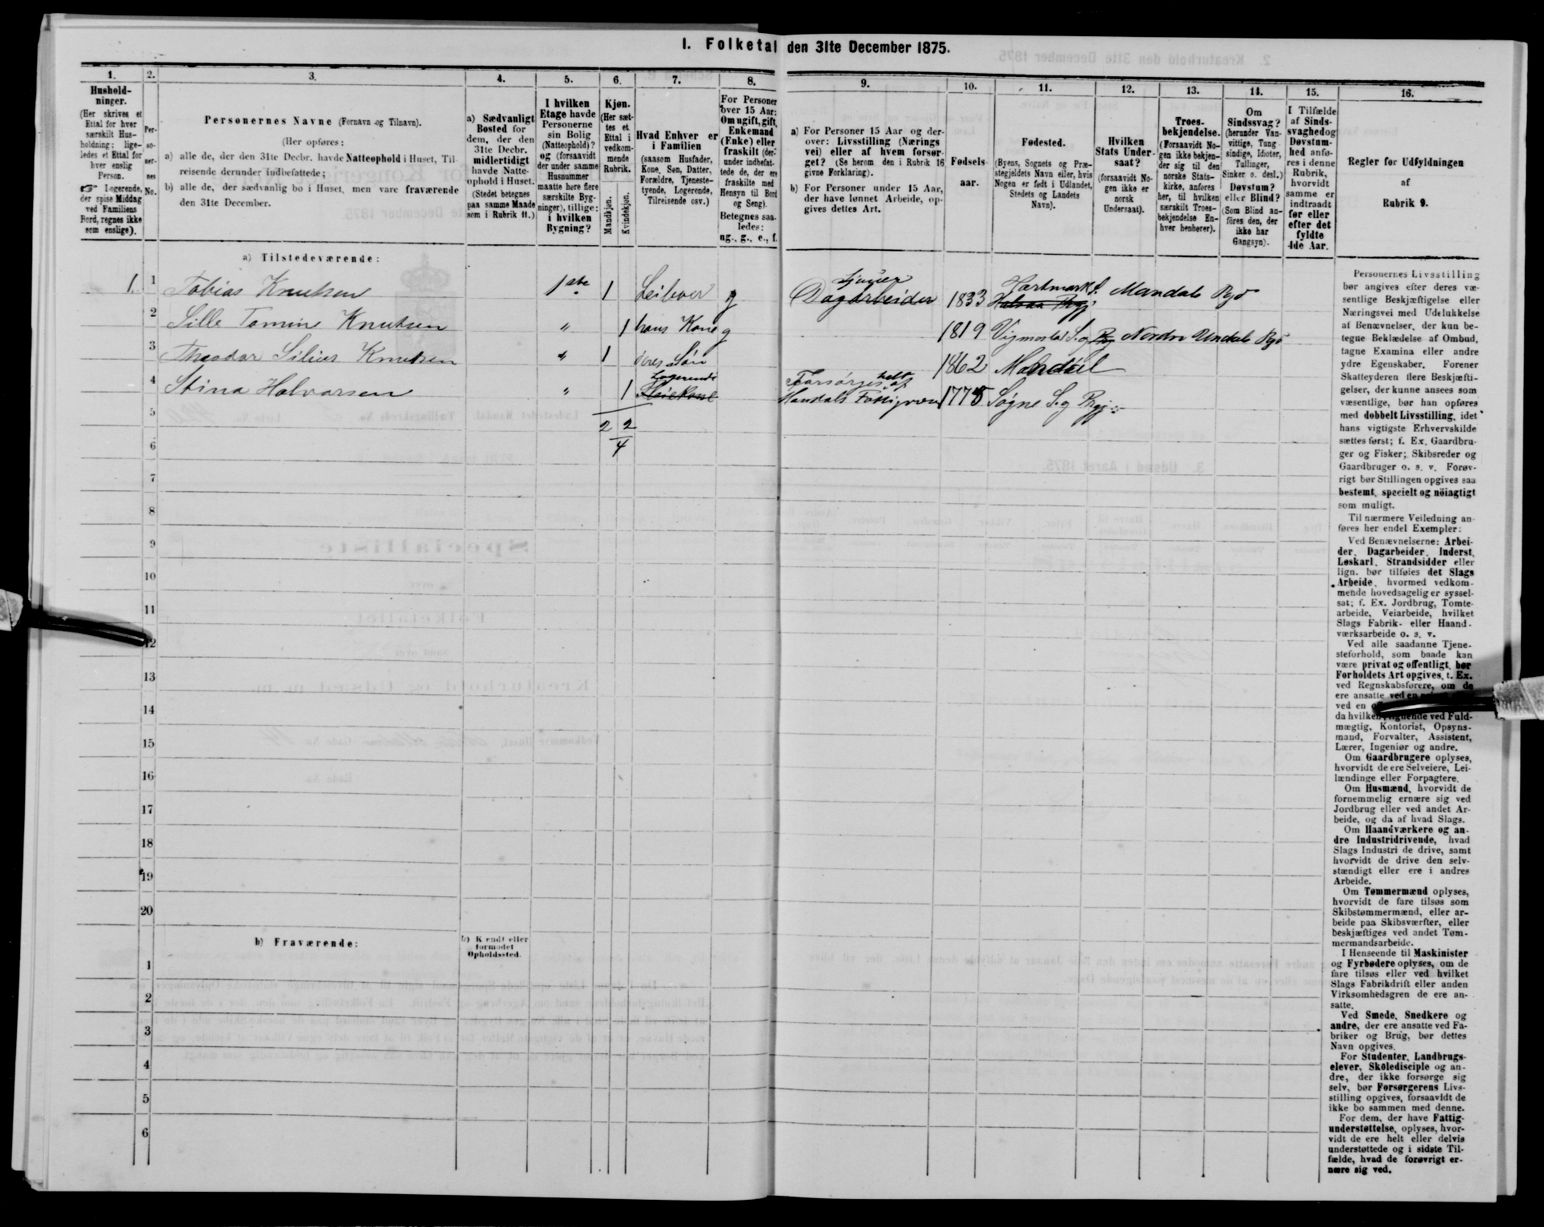 I. Folketal den 31te December 1875.
1.
Hushold-
ninger.
(Her skrives et
Ettal for hver
særskilt Hus-
holdning; lige-
ledes et Ettal for
hver enslig
Person.
☞ Logerende,
der spise Middag
ved Familiens
Bord, regnes ikke
som enslige).
2.
Per-
so-
ner-
nes
No.
3.
Personernes Navne (Fornavn og Tilnavn).
(Her opføres:
a) alle de, der den 31te Decbr. havde Natteophold i Huset, Til-
reisende derunder indbefattede;
b) alle de, der sædvanlig bo i Huset, men vare fraværende
den 31te December.
4.
a) Sædvanligt
Bosted for
dem, der den
31te Decbr.
midlertidigt
havde Natte-
ophold i Huset.
(Stedet betegnes
paa samme Maade
som i Rubrik 11.)
5.
I hvilken
Etage havde
Personerne
sin Bolig
(Natteophold)?
og (forsaavidt
der under samme
Husnummer
maatte høre flere
særskilte Byg-
ninger), tillige:
i hvilken
Bygning?
6.
Kjøn.
(Her sæt-
tes et
Ettal i
vedkom-
mende
Rubrik.
Mandkjøn.
Kvindekjøn.
7.
Hvad Enhver er
i Familien
(saasom Husfader,
Kone, Søn, Datter,
Forældre, Tjeneste-
tyende, Logerende,
Tilreisende osv.)
8.
For Personer
over 15 Aar:
Om ugift, gift,
Enkemand
(Enke) eller
fraskilt (der-
under indbefat-
tede de, der ere
fraskilte med
Hensyn til Bord
og Seng).
Betegnes saa-
ledes:
ug., g., e., f.
9.
a) For Personer 15 Aar og der-
over: Livsstilling (Nærings
vei) eller af hvem forsør-
get? (Se herom den i Rubrik 16
givne Forklaring).
b) For Personer under 15 Aar,
der have lønnet Arbeide, op-
gives dettes Art.
10.
Fødsels-
aar.
11.
Fødested.
(Byens, Sognets og Præ-
stegjeldets Navn eller, hvis
Nogen er født i Udlandet,
Stedets og Landets
Navn).
12.
Hvilken
Stats Under-
saat?
(forsaavidt No-
gen ikke er
norsk
Undersaat).
13.
Troes-
bekjendelse.
(Forsaavidt No-
gen ikke bekjen-
der sig til den
norske Stats-
kirke, anføres
her, til hvilken
særskilt Troes-
bekjendelse En-
hver henhører).
14.
Om
Sindssvag?
(herunder Van-
vittige, Tung-
sindige, Idioter,
Tullinger,
Sinker o. desl.)
Døvstum?
eller Blind?
(Som Blind an-
føres den, der
ikke har
Gangsyn).
15.
I Tilfælde
af Sinds-
svaghed og
Døvstum-
hed anfø-
res i denne
Rubrik,
hvorvidt
samme er
indtraadt
før eller
efter det
fyldte
4de Aar.
16.
Regler for Udfyldningen
af
Rubrik 9.
a) Tilstedeværende:
1. 1 Tobias Knutsen 1ste 1 Leiboer g Dagarbeider 1833 Hartmark S. Mandals Pgd
2 Sille Tomine Knutsen " 1 hans Kone g 1819 Vigmostad S. og Nordre Undals Pgd
3 Theodor Silius Knutsen " 1 deres Søn 1862 Mandal
4 Stina Halvorsen " 1 Logerende Forsørges helt af
Mandals Fattigvæsen 1775 Søgne S. og Prgj.
5
2 2
6
4
7
8
9
10
11
12
13
14
15
16
17
18
19
20
b) Fraværende:
b) Kjendt eller
formodet
Opholdssted.
1
2
3
4
5
6
Personernes Livsstilling
bør angives efter deres væ-
sentlige Beskjæftigelse eller
Næringsvei med Udelukkelse
af Benævnelser, der kun be-
tegne Beklædelse af Ombud,
tagne Examina eller andre
ydre Egenskaber. Forener
Skatteyderen flere Beskjæfti-
gelser, der kunne ansees som
væsentlige, bør han opføres
med dobbelt Livsstilling, idet
hans vigtigste Erhvervskilde
sættes først; f. Ex. Gaardbru-
ger og Fisker; Skibsreder og
Gaardbruger o. s. v. Forøv-
rigt bør Stillingen opgives saa
bestemt, specielt og nøiagtigt
som muligt.
Til nærmere Veiledning an-
føres her endel Exempler:
Ved Benævnelserne: Arbei-
der, Dagarbeider, Inderst,
Løskarl, Strandsidder eller
lign. bør tilføies det Slags
Arbeide, hvormed vedkom-
mende hovedsagelig er syssel-
sat; f. Ex. Jordbrug, Tomte-
arbeide, Veiarbeide, hvilket
Slags Fabrik- eller Haand-
værksarbeide o. s. v.
Ved alle saadanne Tjene-
steforhold, som baade kan
være privat og offentligt, bør
Forholdets Art opgives, t. Ex.
ved Regnskabsførere, om de
ere ansatte ved en
ved en
da hvilken; lignende ved Fuld-
mægtig, Kontorist, Opsyns-
mand, Forvalter, Assistent,
Lærer, Ingeniør og andre.
Om Gaardbrugere oplyses,
hvorvidt de ere Selveiere, Lei-
lændinge eller Forpagtere.
Om Husmænd, hvorvidt de
fornemmelig ernære sig ved
Jordbrug eller ved andet Ar-
beide, og da af hvad Slags.
Om Haandværkere og an-
dre Industridrivende, hvad
Slags Industri de drive, samt
hvorvidt de drive den selv-
stændigt eller ere i andres
Arbeide.
Om Tømmermænd oplyses,
hvorvidt de fare tilsøs som
Skibstømmermænd, eller ar-
beide paa Skibsværfter, eller
beskjæftiges ved andet Tøm-
mermandsarbeide.
I Henseende til Maskinister
og Fyrbødere oplyses, om de
fare tilsøs eller ved hvilket
Slags Fabrikdrift eller anden
Virksomhedsgren de ere an-
satte.
Ved Smede, Snedkere og
andre, der ere ansatte ved Fa-
briker og Brug, bør dettes
Navn opgives.
For Studenter, Landbrugs-
elever, Skoledisciple og an-
dre, der ikke forsørge sig
selv, bør Forsørgerens Livs-
stilling opgives, forsaavidt de
ikke bo sammen med denne.
For dem, der have Fattig-
understøttelse, oplyses, hvor-
vidt de ere helt eller delvis
understøttede og i sidste Til-
fælde, hvad de forøvrigt er-
nære sig ved.